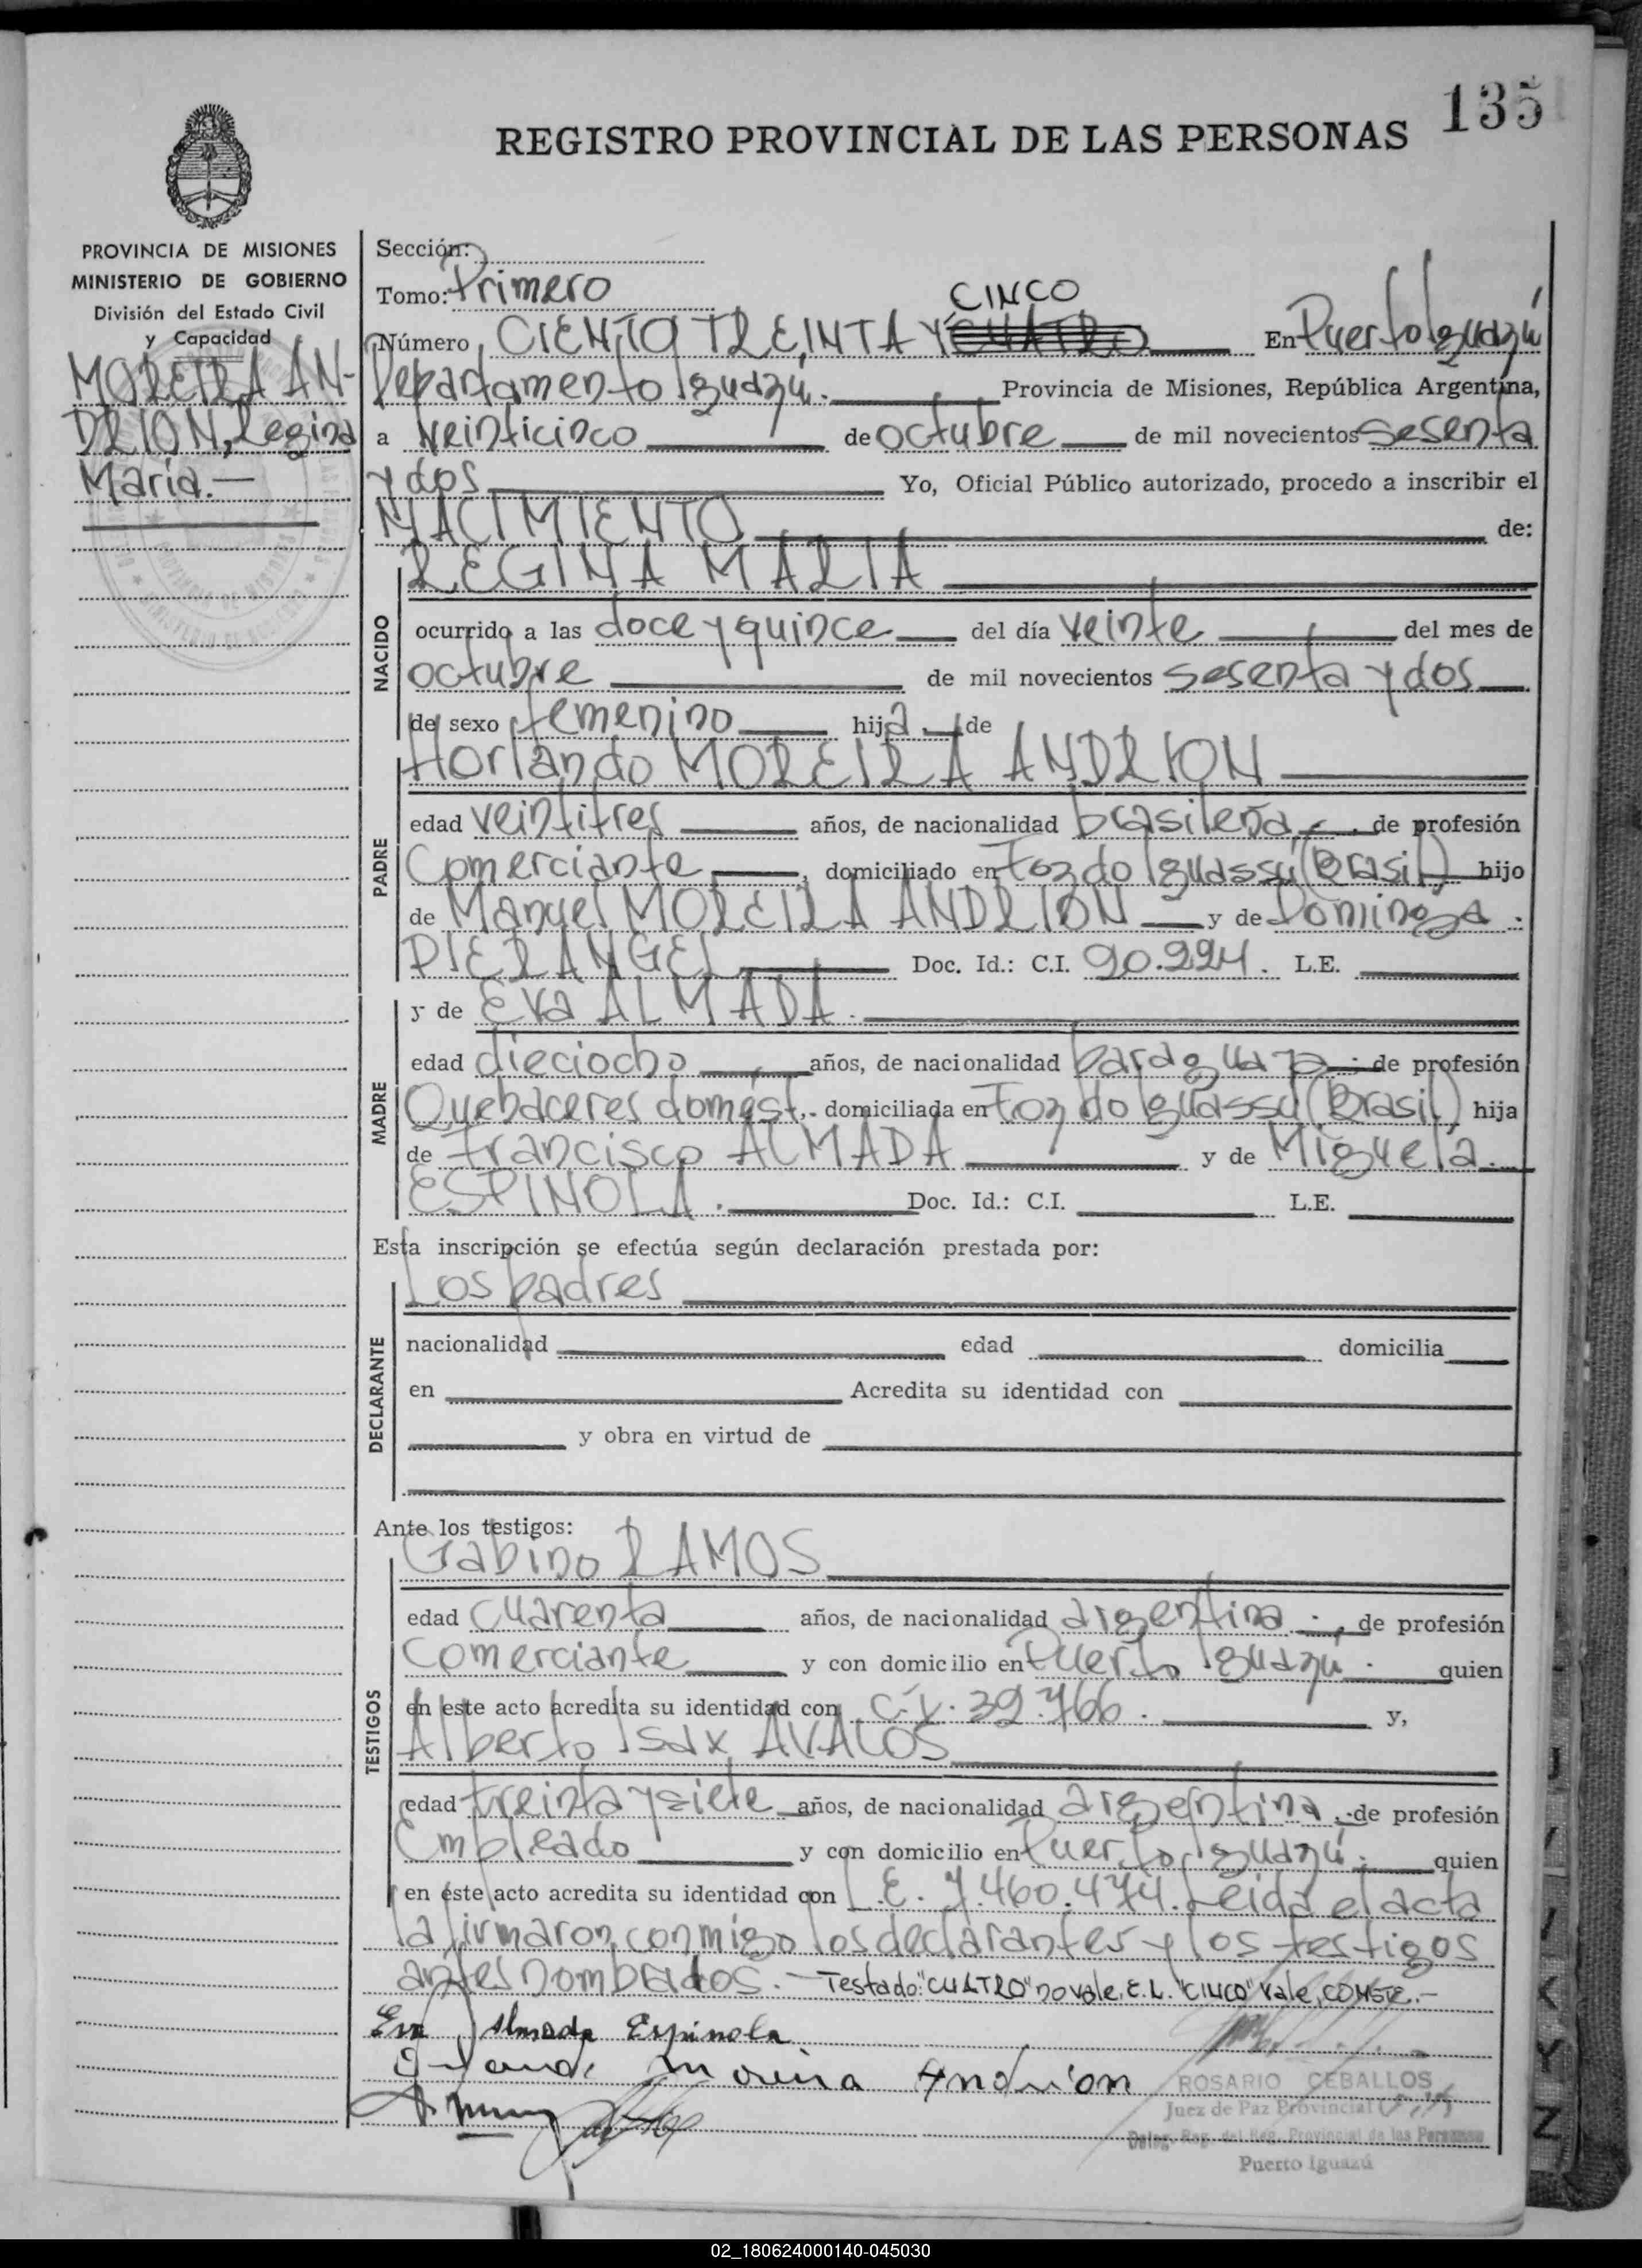 135
REGISTRO PROVINCIAL DE LAS PERSONAS
PROVINCIA DE MISIONES
MINISTERIO DE GOBIERNO
División del Estado Civil
y Capacidad
MOREIRA AN-
DRION, Regina
María.—
Sección:
Tomo: Primero
CINCO
Número CIENTO TREINTA Y CUATRO En Puerto Iguazú
Departamento Iguazú. Provincia de Misiones, República Argentina,
a veinticinco de octubre de mil novecientos sesenta
y dos Yo, Oficial Público autorizado, procedo a inscribir el
NACIMIENTO de:
NACIDO
REGINA MARIA
ocurrido a las doce y quince del día veinte del mes de
octubre de mil novecientos sesenta y dos
de sexo femenino hija de
PADRE
Horlando MOREIRA ANDRION
edad veintitres años, de nacionalidad brasileña, de profesión
Comerciante, domiciliado en Foz do Iguassú (Brasil) hijo
de Manuel MOREIRA ANDRION y de Dominga
PIERANGEL Doc. Id.: C.I. 90.994. L.E.
MADRE
y de Eva ALMADA.
edad dieciocho años, de nacionalidad paraguaya de profesión
Quehaceres domést., domiciliada en Foz do Iguassú (Brasil) hija
de Francisco ALMADA y de Miguela
ESPINOLA. Doc. Id.: C.I. L.E.
Esta inscripción se efectúa según declaración prestada por:
DECLARANTE
Los padres
nacionalidad edad domicilia
en Acredita su identidad con
y obra en virtud de
Ante los testigos:
TESTIGOS
Gabino RAMOS
edad cuarenta años, de nacionalidad argentina, de profesión
Comerciante y con domicilio en Puerto Iguazú quien
en este acto acredita su identidad con C.I. 39.766. y,
Alberto Isax AVALOS
edad treinta y siete años, de nacionalidad argentina, de profesión
Empleado y con domicilio en Puerto Iguazú; quien
en este acto acredita su identidad con L.E. 7.460.474. Leida el acta
la firmaron conmigo los declarantes y los testigos
antes nombrados.— Testado: "CUATRO" no vale. E.L. "CINCO" Vale, CONSTE.—
Eva Almada Espinola
Moreira Andrion
ROSARIO CEBALLOS
Juez de Paz Provincial
Deleg. Reg. del Reg. Provincial de las Personas
Puerto Iguazú
02_180624000140-045030